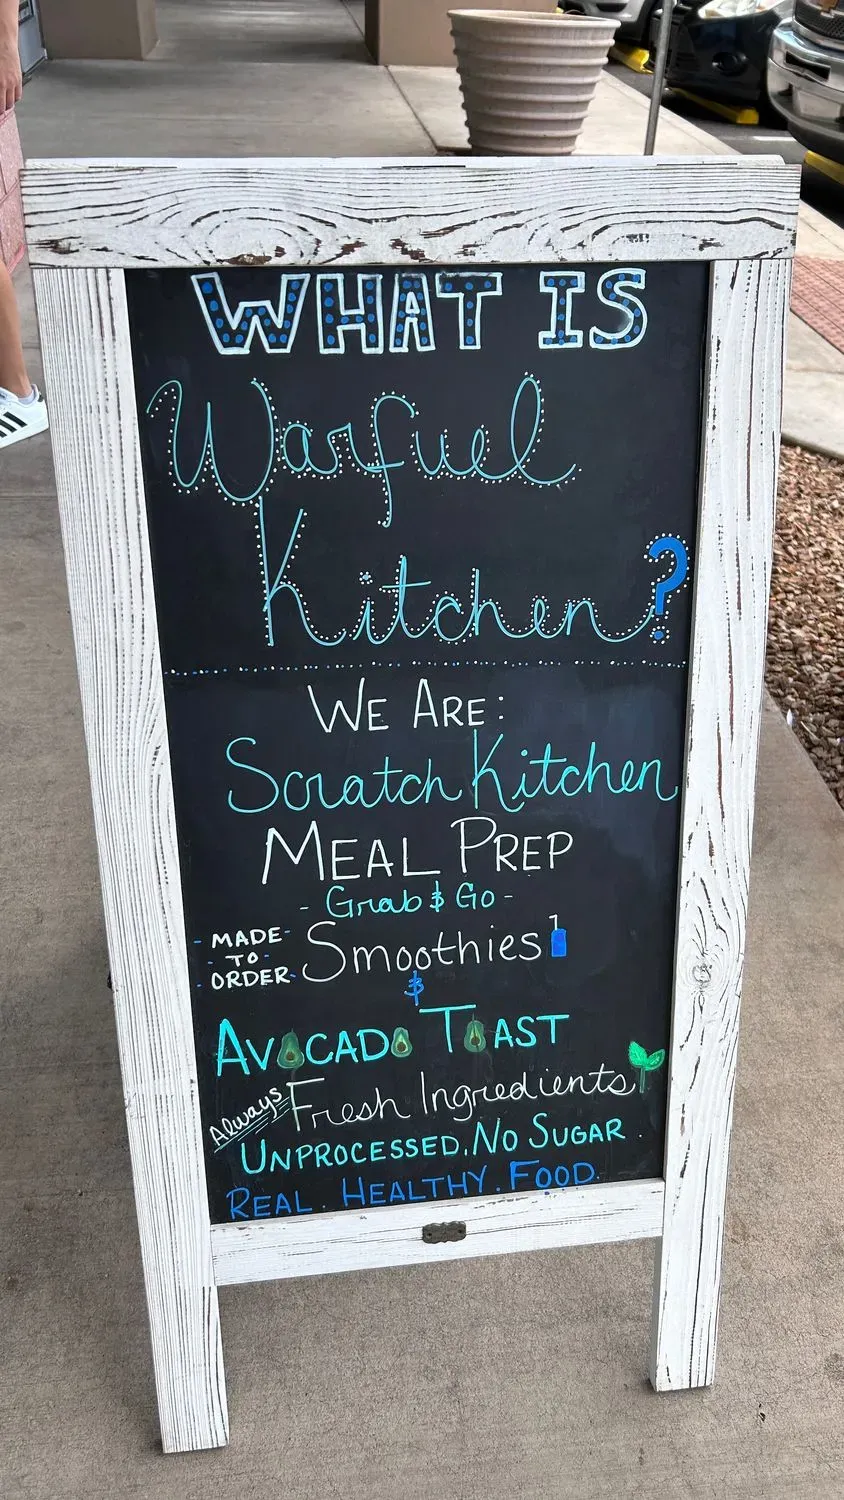 WHAT IS
Warfuel
Kitchen?
WE ARE:
Scratch Kitchen
MEAL PREP
- Grab & Go -
- MADE -
- TO -
- ORDER -
Smoothies
&
AVOCADO TOAST
Always Fresh Ingredients
UNPROCESSED. NO SUGAR.
REAL. HEALTHY. FOOD.